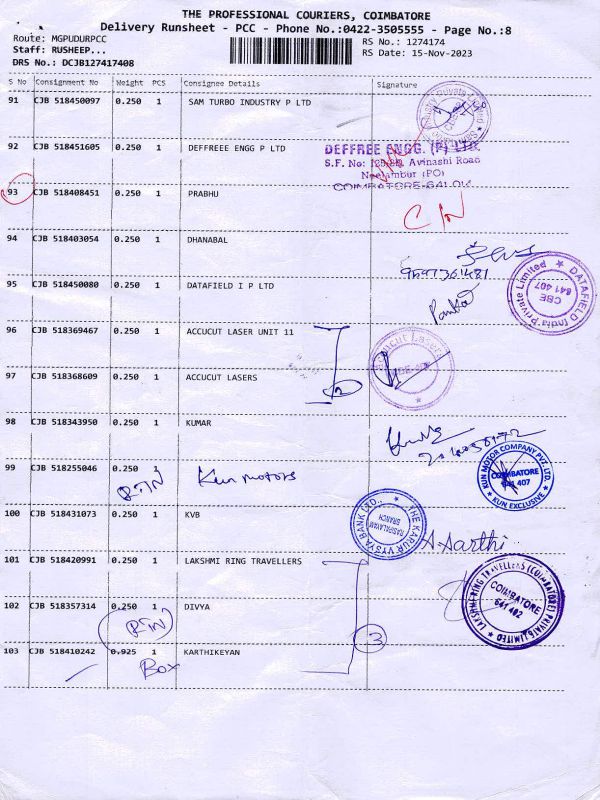 THE PROFESSIONAL COURIERS, COIMBATORE
Delivery Runsheet - PCC - Phone No.:0422-3505555 - Page No.:8
Route: MGPUDURPCC
RS No.: 1274174
Staff: RUSHEEP...
RS Date: 15-Nov-2023
DRS No.: DCJB127417408
S No Consignment No Weight PCS Consignee Details Signature
91 CJB 518450097 0.250 1 SAM TURBO INDUSTRY P LTD
92 CJB 518451605 0.250 1 DEFFREEE ENGG P LTD
DEFFREE ENGG. (P) LTD.
Avinashi Road
Neelambur (PO)
93 CJB 518408451 0.250 1 PRABHU
C/N
94 CJB 518403054 0.250 1 DHANABAL
95 CJB 518450080 0.250 1 DATAFIELD I P LTD
DATAFIELD India Private Limited
CBE
641 407
96 CJB 518369467 0.250 1 ACCUCUT LASER UNIT 11
97 CJB 518368609 0.250 1 ACCUCUT LASERS
2
98 CJB 518343950 0.250 1 KUMAR
99 CJB 518255046 0.250
Kun motors
KUN MOTOR COMPANY PVT. LTD.
COIMBATORE
641 407
KUN EXCLUSIVE
100 CJB 518431073 0.250 1 KVB
THE KARUR VYSYA BANK LTD.,
BRANCH
A Aarthi
101 CJB 518420991 0.250 1 LAKSHMI RING TRAVELLERS
LAKSHMI RING TRAVELLERS (COIMBATORE) PRIVATE LIMITED
COIMBATORE
641 402
102 CJB 518357314 0.250 1 DIVYA
3
103 CJB 518410242 0.925 1 KARTHIKEYAN
Box